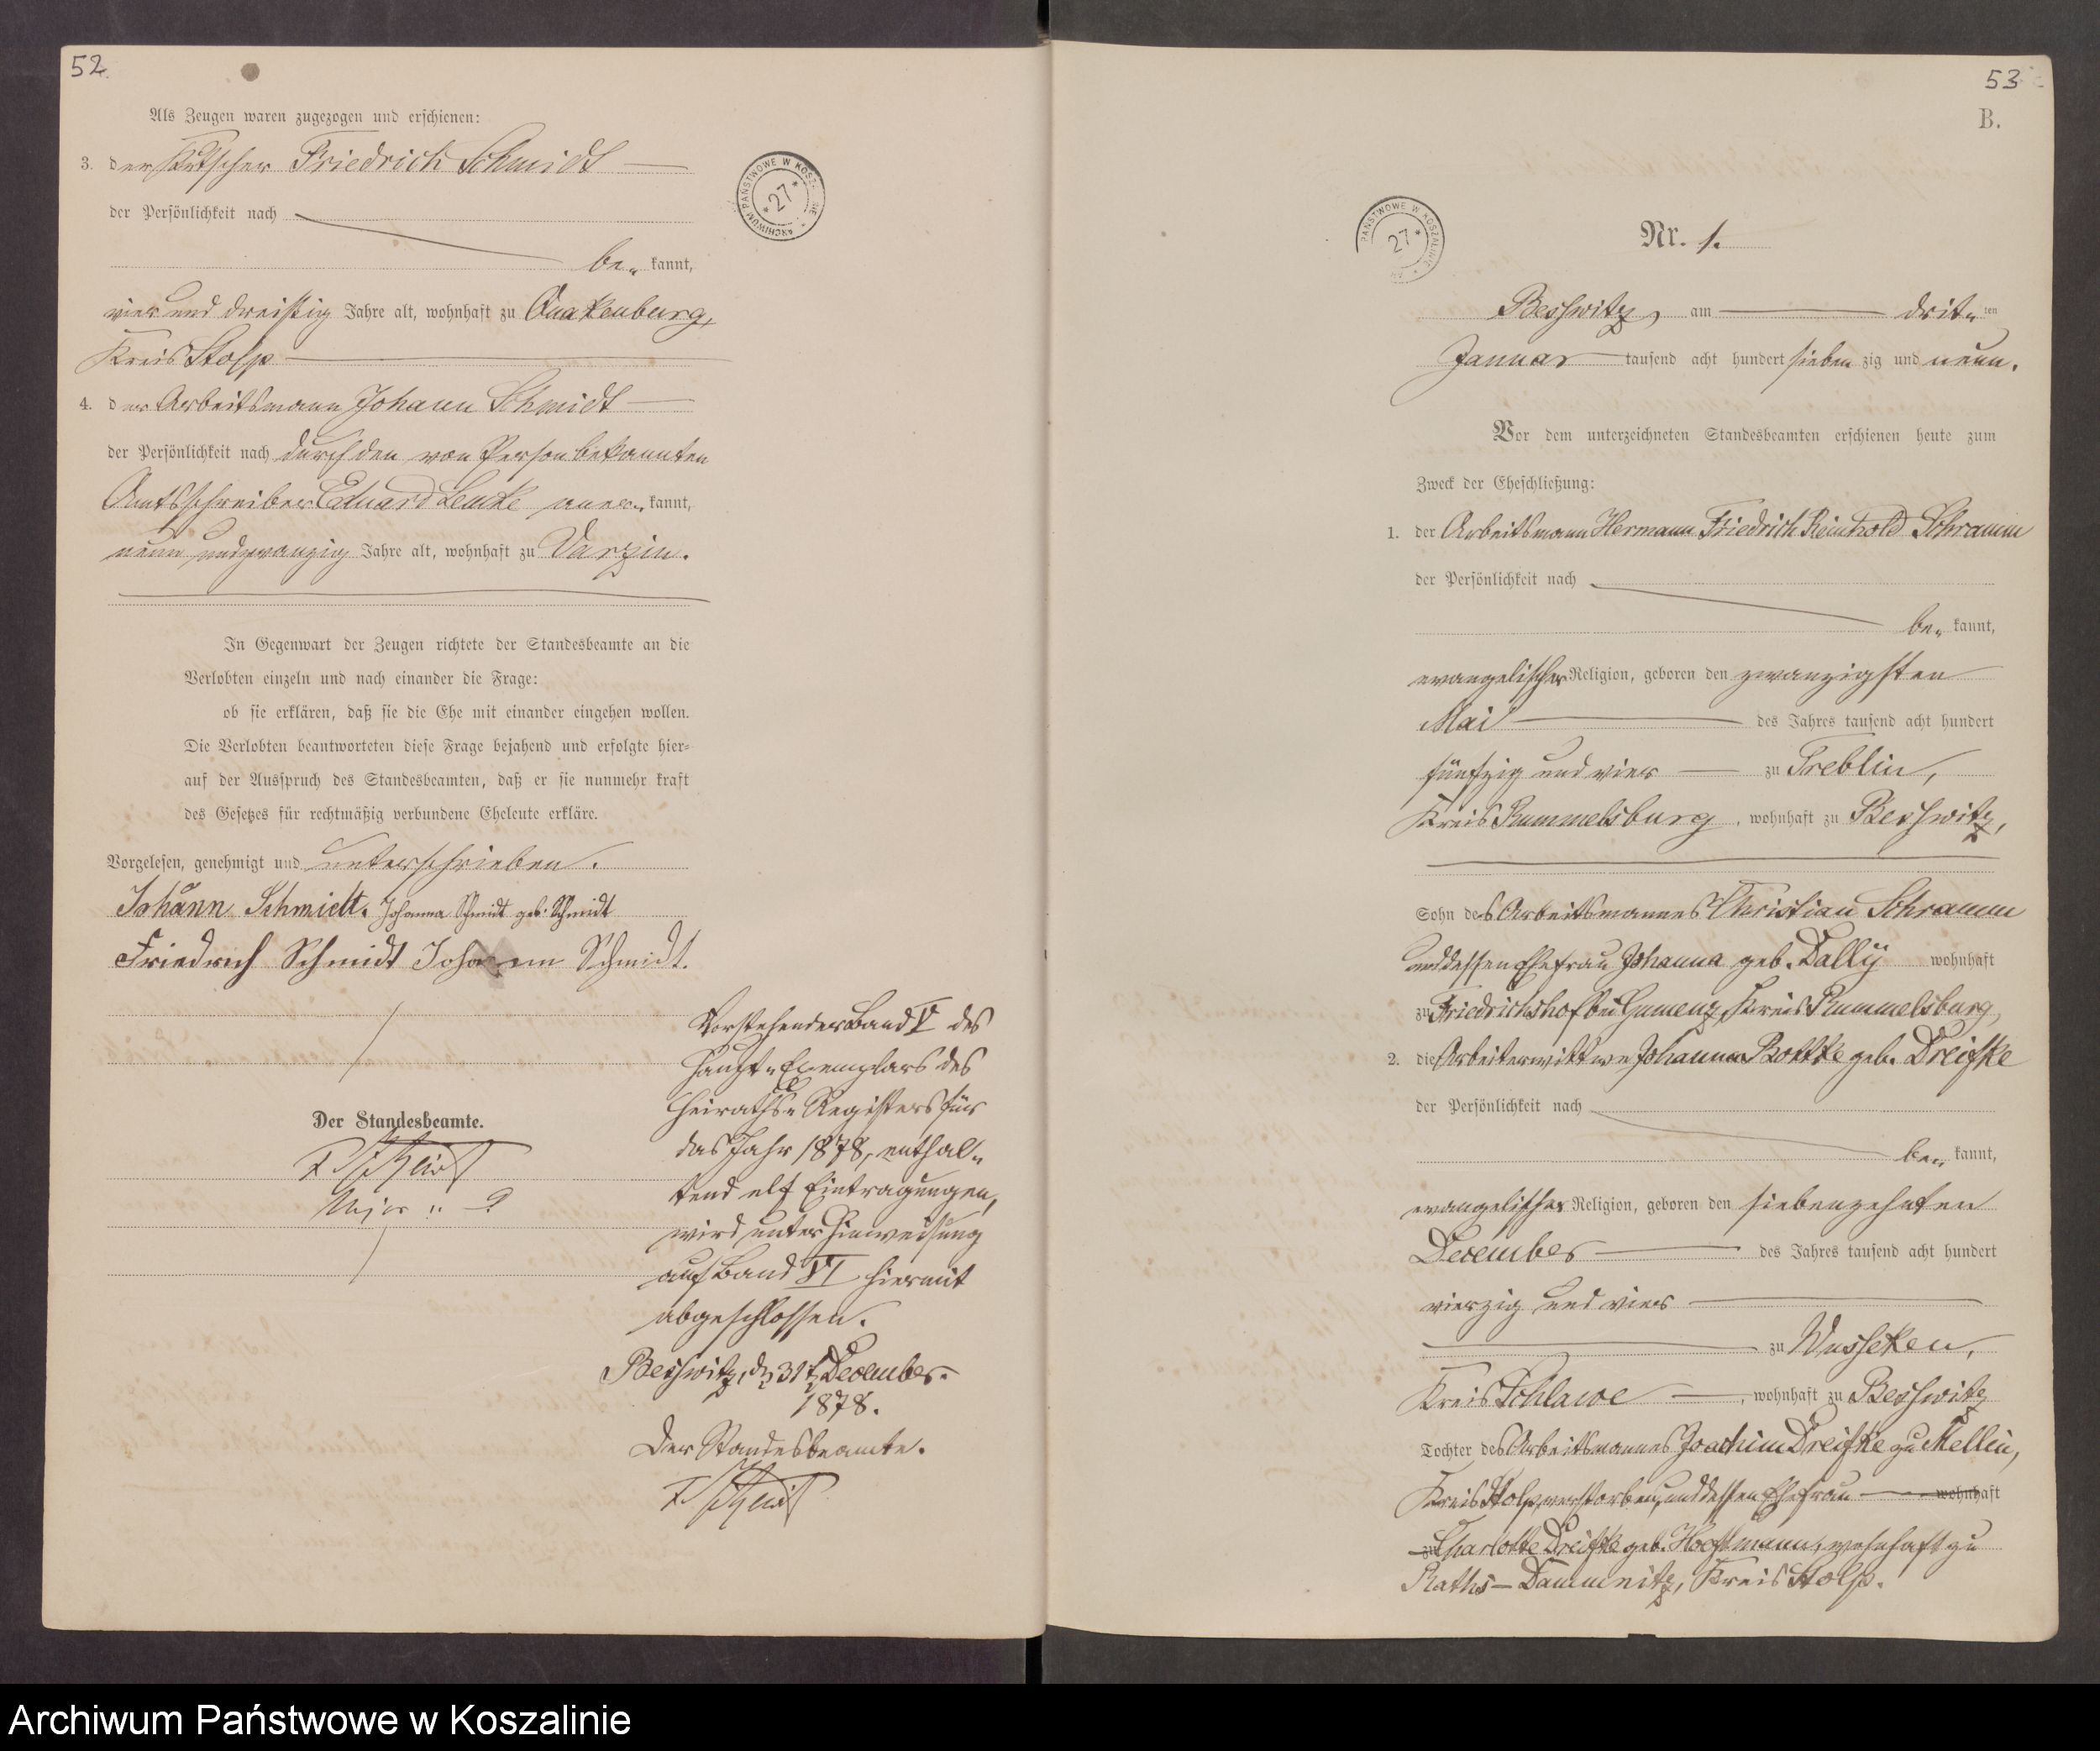 52
Als Zeugen waren zugezogen und erschienen:
3. der Kutscher Friedrich Schmidt
der Persönlichkeit nach
be- kannt,
vier und dreißig Jahre alt, wohnhaft zu Quakenburg,
Kreis Stolp
4. der Arbeitsmann Johann Schmidt
der Persönlichkeit nach durch den von Person bekannten
Amtsschreiber Eduard Lemke aner- kannt,
neun und zwanzig Jahre alt, wohnhaft zu Varzin.
In Gegenwart der Zeugen richtete der Standesbeamte an die
Verlobten einzeln und nach einander die Frage:
ob sie erklären, daß sie die Ehe mit einander eingehen wollen.
Die Verlobten beantworteten diese Frage bejahend und erfolgte hier-
auf der Ausspruch des Standesbeamten, daß er sie nunmehr kraft
des Gesetzes für rechtmäßig verbundene Eheleute erkläre.
Vorgelesen, genehmigt und unterschrieben.
Johann Schmidt. Johanna Schmidt geb. Schmidt
Friedrich Schmidt Johann Schmidt.
Der Standesbeamte.
Vorstehender Band V des
Haupt-Exemplars des
Heiraths-Registers für
das Jahr 1878, enthal-
tend elf Eintragungen,
wird unter Hinweisung
auf Band VI hiermit
abgeschlossen.
Besswitz, d. 31t December
1878.
Der Standesbeamte.
ARCHIWUM PAŃSTWOWE W KOSZALINIE
* 27 *
53
B.
PAŃSTWOWE W KOSZALINIE
27 *
Nr. 1.
Besswitz, am drit- ten
Januar tausend acht hundert sieben zig und neun.
Vor dem unterzeichneten Standesbeamten erschienen heute zum
Zweck der Eheschließung:
1. der Arbeitsmann Hermann Friedrich Reinhold Schramm
der Persönlichkeit nach
be- kannt,
evangelischer Religion, geboren den zwanzigsten
Mai des Jahres tausend acht hundert
fünfzig und vier zu Treblin,
Kreis Rummelsburg, wohnhaft zu Besswitz,
Sohn des Arbeitsmannes Christian Schramm
und dessen Ehefrau Johanna geb. Dally wohnhaft
zu Friedrichshof bei Gumenz, Kreis Rummelsburg,
2. die Arbeiterwittwe Johanna Rottke geb. Dreifke
der Persönlichkeit nach
be- kannt,
evangelischer Religion, geboren den siebenzehnten
December des Jahres tausend acht hundert
vierzig und vier
zu Wusseken,
Kreis Schlawe, wohnhaft zu Besswitz
Tochter des Arbeitsmannes Joachim Dreifke zu Mellin,
Kreis Stolp, verstorben, und dessen Ehefrau wohnhaft
zu Charlotte Dreifke geb. Hoeftmann, wohnhaft zu
Raths-Damnitz, Kreis Stolp.
Archiwum Państwowe w Koszalinie